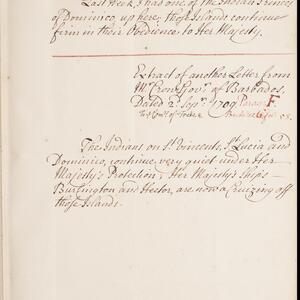 Last Week, I had one of the Indian Princes
of Dominico, up here; those Islands continue
firm in their Obedience to Her Majesty.
Extract of another Letter from
Mr. Crow Govr. of Barbados,
Dated 2d. Sepr. 1709. Paragr. F.
The Indians on St. Vincents, St. Lucia and
Dominico, continue very quiet under Her
Majesty's Protection; Her Majesty's Ships
Burlington and Hector, are now a Cruizing off
those Islands.